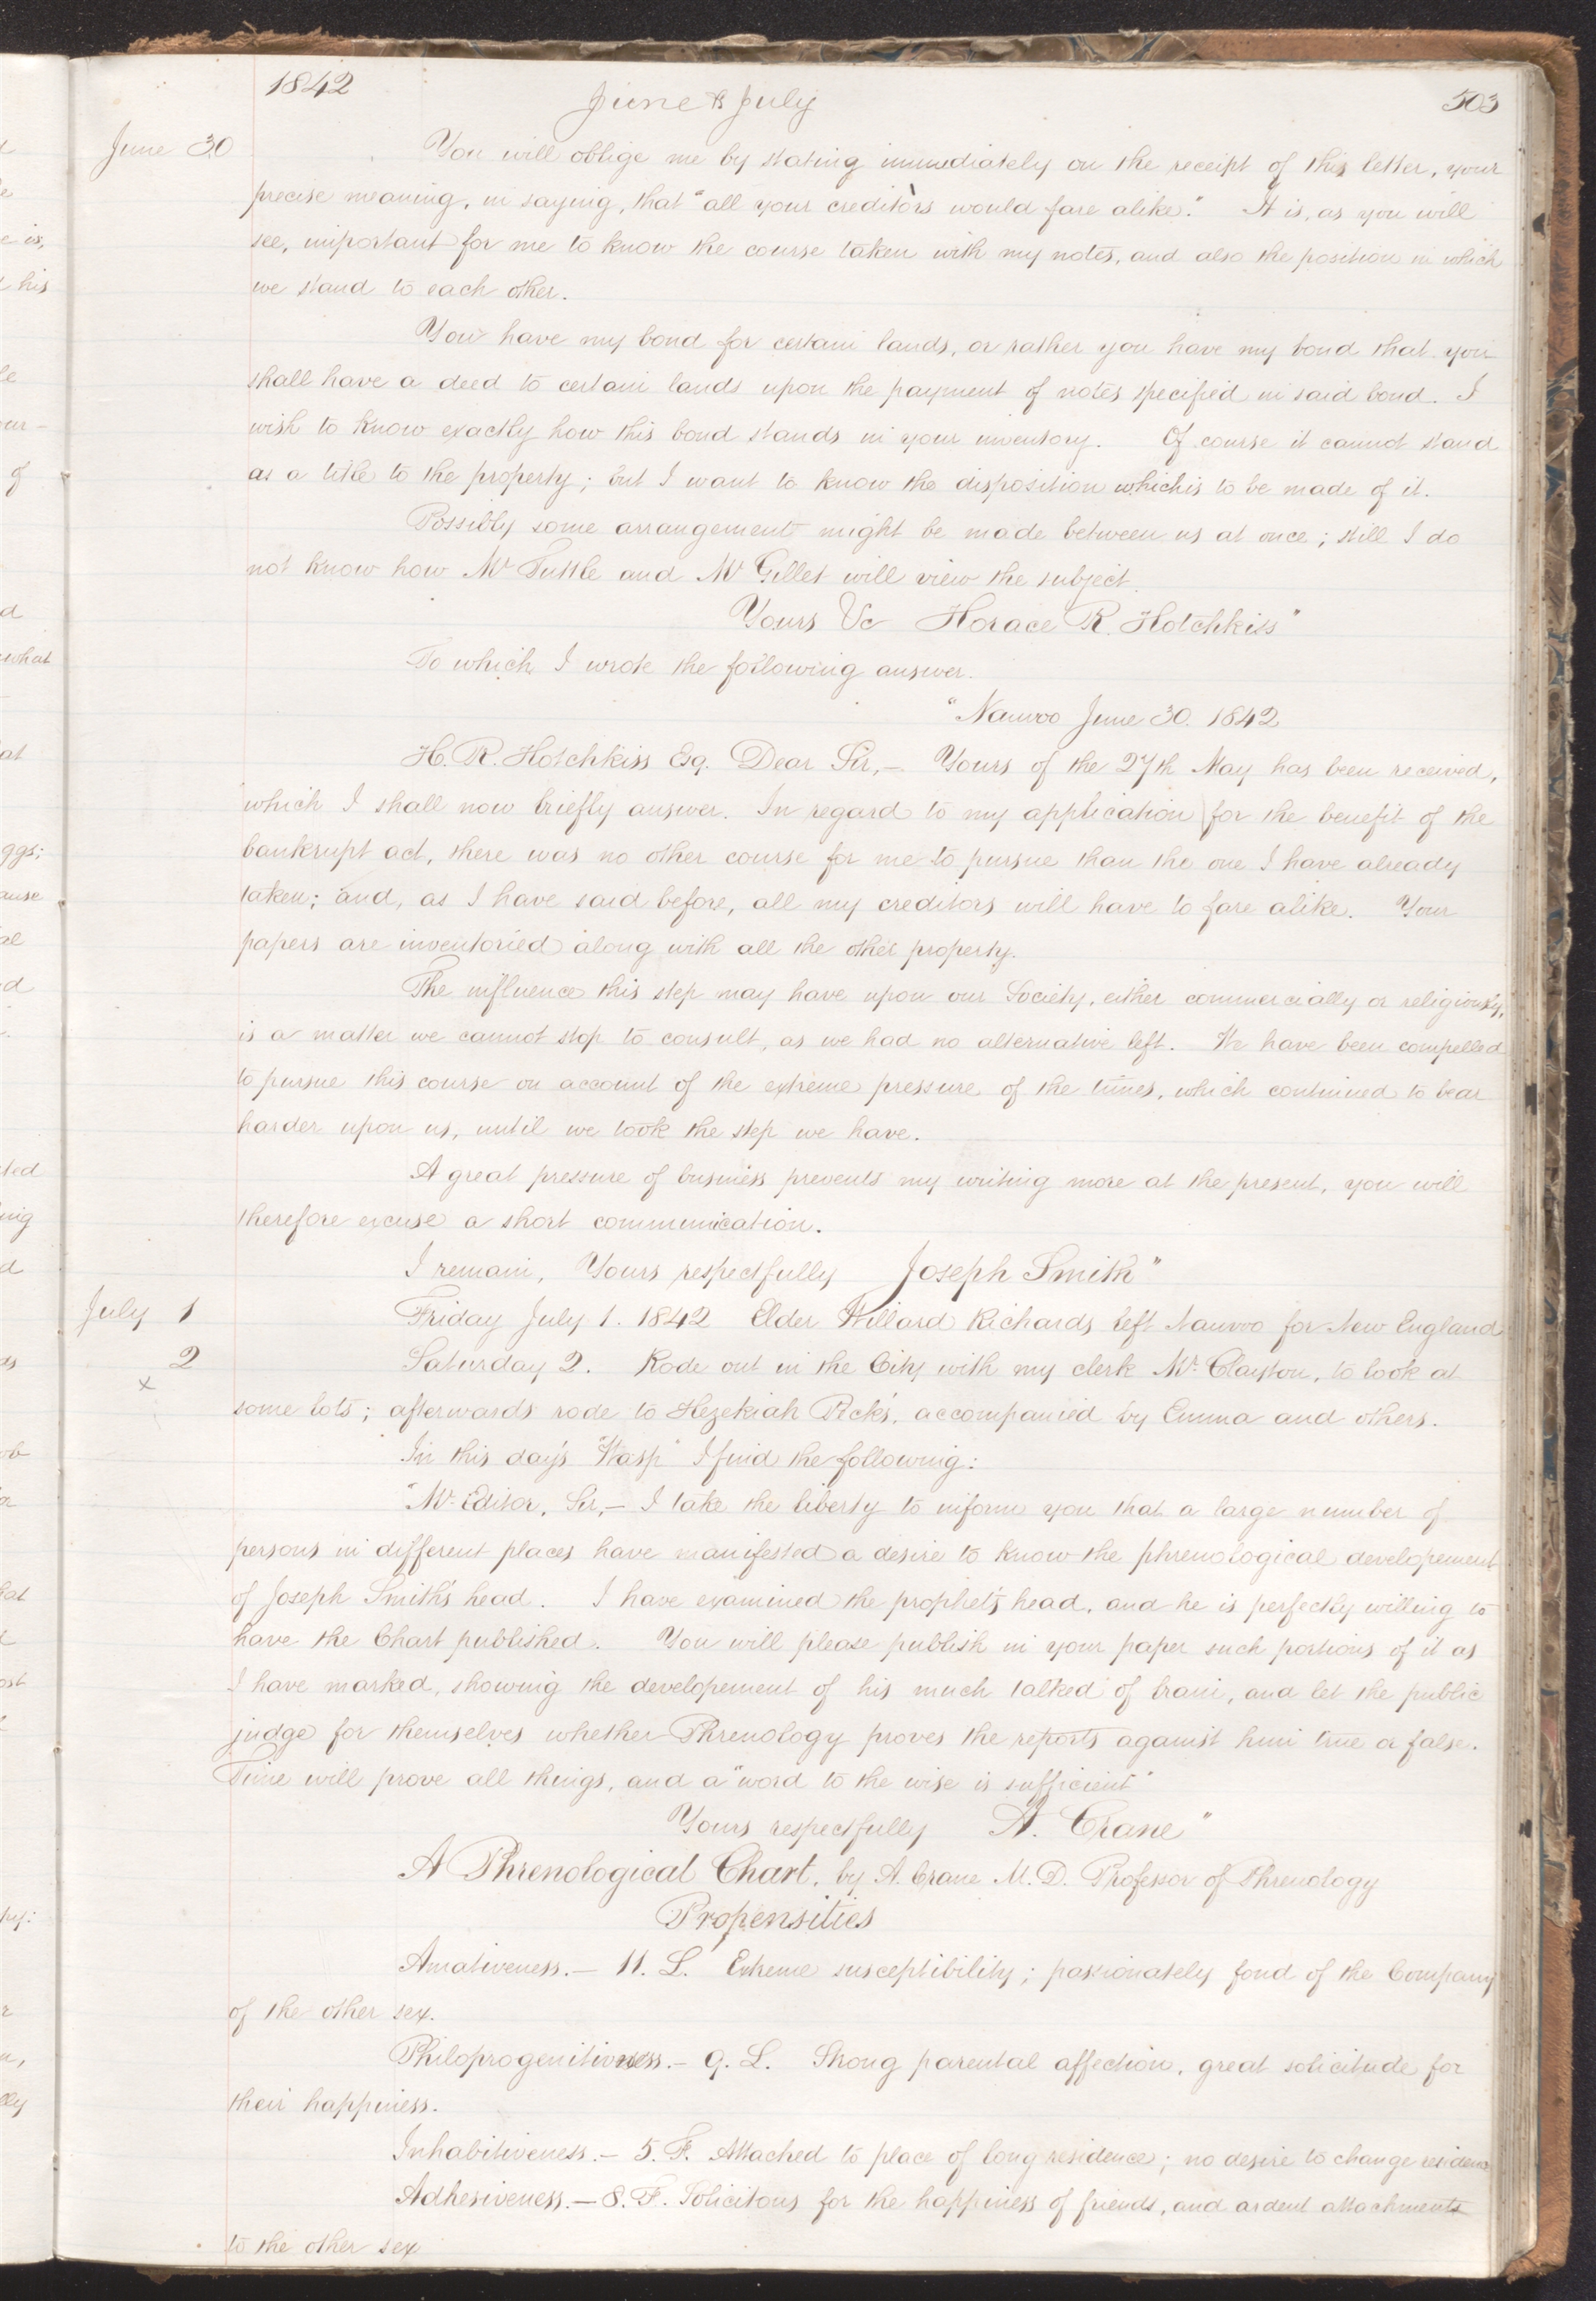 1842 June & July 503
June 30 You will oblige me by stating immediately on the receipt of this letter, your
precise meaning, in saying, that "all your creditors would fare alike." It is, as you will
see, important for me to know the course taken with my notes, and also the position in which
we stand to each other.
You have my bond for certain lands, or rather you have my bond that you
shall have a deed to certain lands upon the payment of notes specified in said bond. I
wish to know exactly how this bond stands in your inventory. Of course it cannot stand
as a title to the property; but I want to know the disposition which is to be made of it.
Possibly some arrangement might be made between us at once; still I do
not know how Mr Tuttle and Mr Gillet will view the subject.
Yours &c Horace R. Hotchkiss"
To which I wrote the following answer.
"Nauvoo June 30. 1842
H. R. Hotchkiss Esq. Dear Sir,— Yours of the 27th May has been received,
which I shall now briefly answer. In regard to my application for the benefit of the
bankrupt act, there was no other course for me to pursue than the one I have already
taken; and, as I have said before, all my creditors will have to fare alike. Your
papers are inventoried along with all the other property.
The influence this step may have upon our Society, either commercially or religiously,
is a matter we cannot stop to consult, as we had no alternative left. We have been compelled
to pursue this course on account of the extreme pressure of the times, which continued to bear
harder upon us, until we took the step we have.
A great pressure of business prevents my writing more at the present, you will
therefore excuse a short communication.
I remain, Yours respectfully Joseph Smith"
July 1 Friday July 1. 1842 Elder Willard Richards left Nauvoo for New England
2 Saturday 2. Rode out in the City with my clerk Mr. Clayton, to look at
x
some lots; afterwards rode to Hezekiah Peck's, accompanied by Emma and others.
In this day's "Wasp" I find the following:
"Mr. Editor, Sir,— I take the liberty to inform you that a large number of
persons in different places have manifested a desire to know the phrenological developement
of Joseph Smith's head. I have examined the prophet's head, and he is perfectly willing to
have the Chart published. You will please publish in your paper such portions of it as
I have marked, showing the developement of his much talked of brain, and let the public
judge for themselves whether Phrenology proves the reports against him true or false.
Time will prove all things, and a "word to the wise is sufficient"
Yours respectfully A. Crane"
A Phrenological Chart, by A. Crane M. D. Professor of Phrenology
Propensities
Amativeness.— 11. L. Extreme susceptibility; passionately fond of the Company
of the other sex.
Philoprogenitiveness.— 9. L. Strong parental affection, great solicitude for
their happiness.
Inhabitiveness.— 5. F. Attached to place of long residence; no desire to change residence
Adhesiveness.— 8. F. Solicitous for the happiness of friends, and ardent attachments
to the other sex